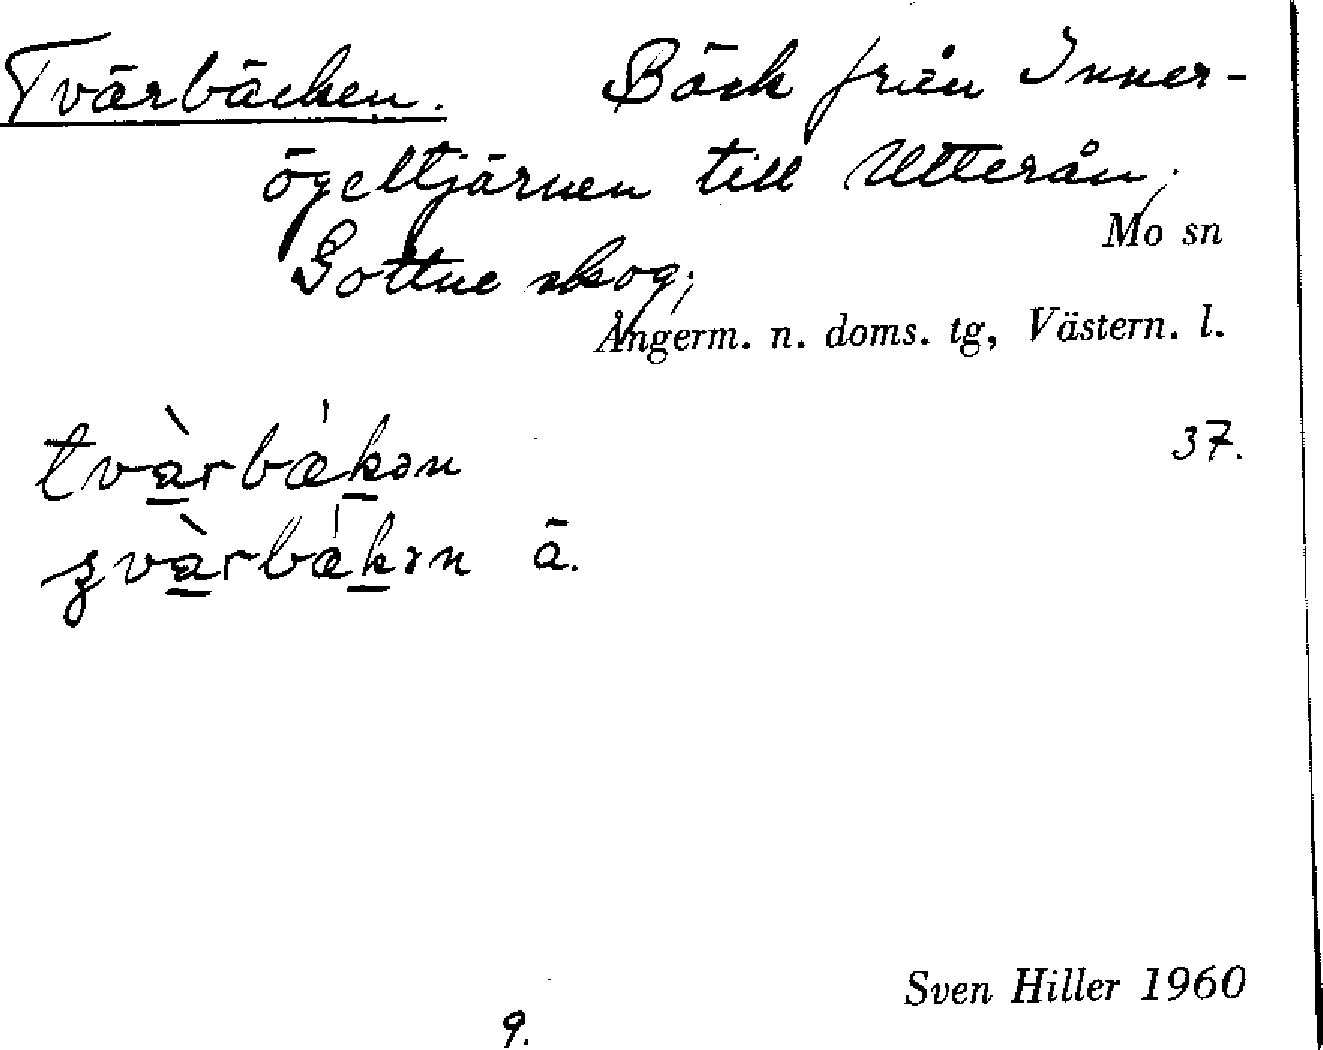 Tvärbäcken. Bäck från Inner-
ögeltjärnen till Utterån,
Mo sn
Gottne skog,
Ångerm. n. doms. tg, Västern. l.
37.
tvàrbákən
ä.
Sven Hiller 1960
9.